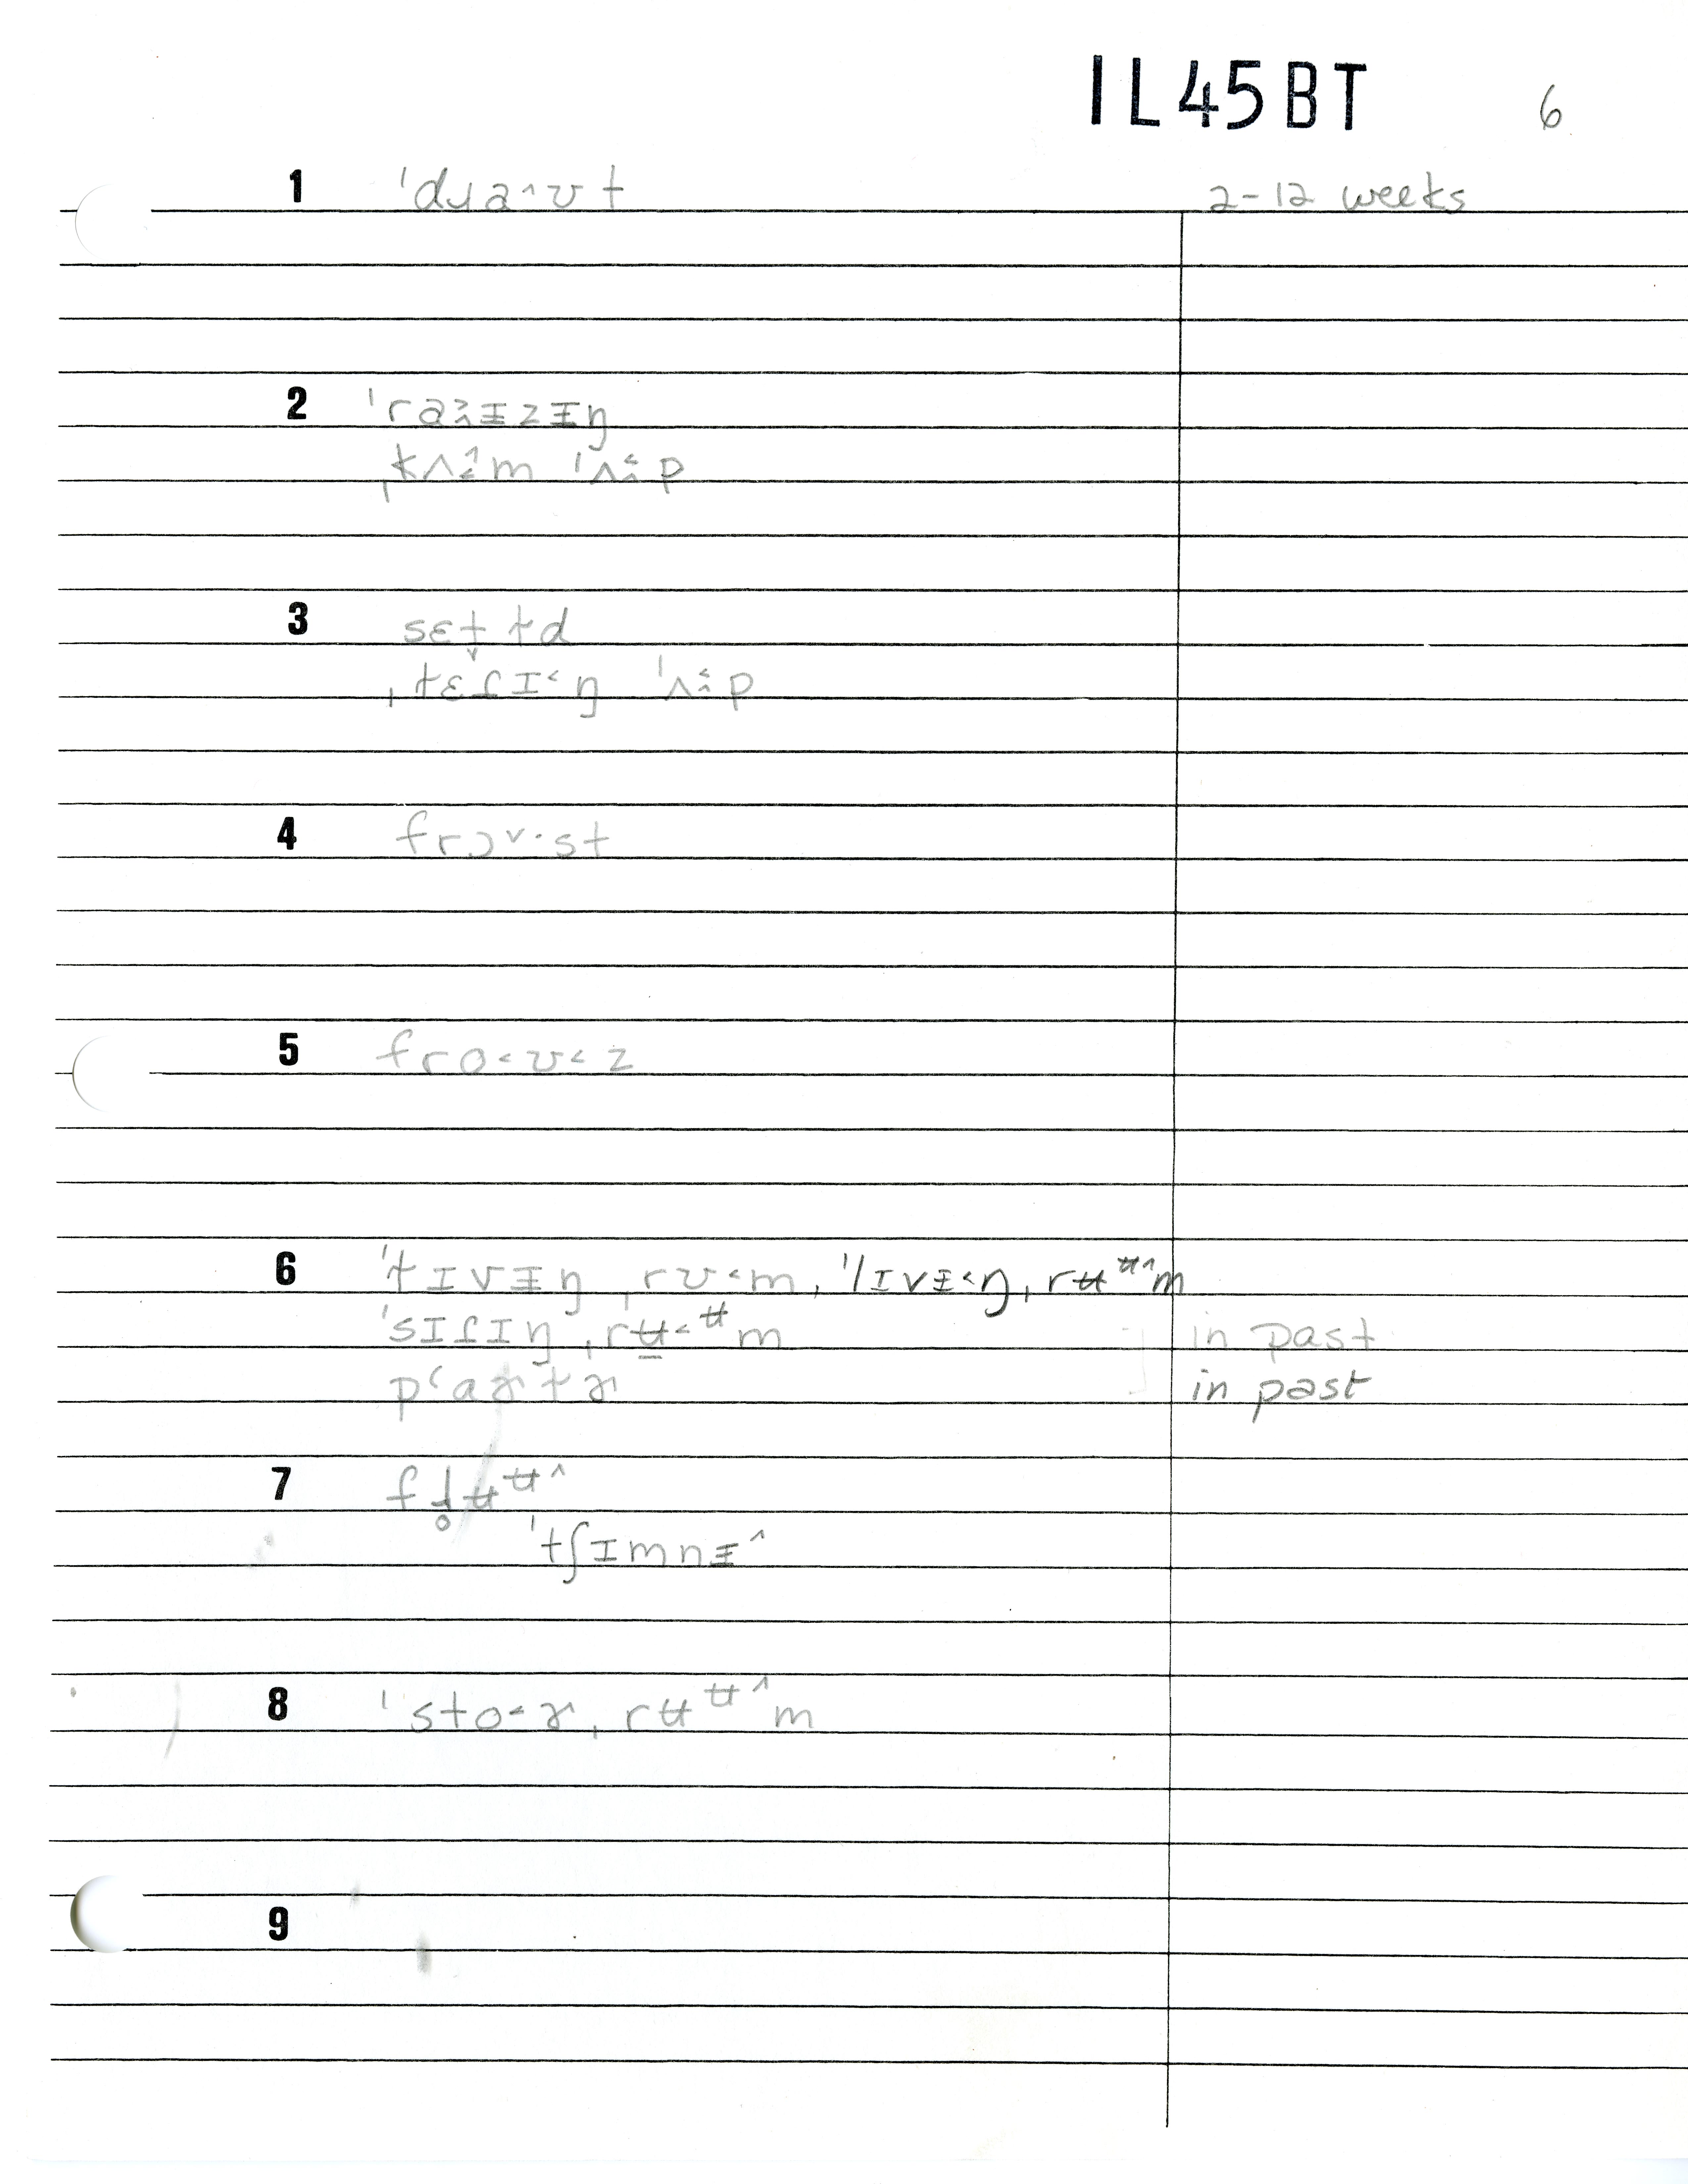 IL45BT 6
1 ˈdɹa˄ʊt 2-12 weeks
2 ˈra˃˄ɪzɪŋ
ˌkʌ˄˂m ˈʌ˂˄p
3 sɛtɫd
ˌtɛɾɪ˂ŋ ˈʌ˂˄p
4 frɔ˅·st
5 fro˂ʊ˂z
6 ˈlɪvɪŋ ˌrʊ˂m, ˈlɪvɪ˂ŋˌrʉʉ˄m
ˈsɪɾɪŋ ˌrʉ˂ʉm ] in past
pʻaɚtɚ in past
7 fɫ̥ʉʉ˄
ˈtʃɪmnɪ˄
8 ˈsto˂ɚˌrʉʉ˄m
9